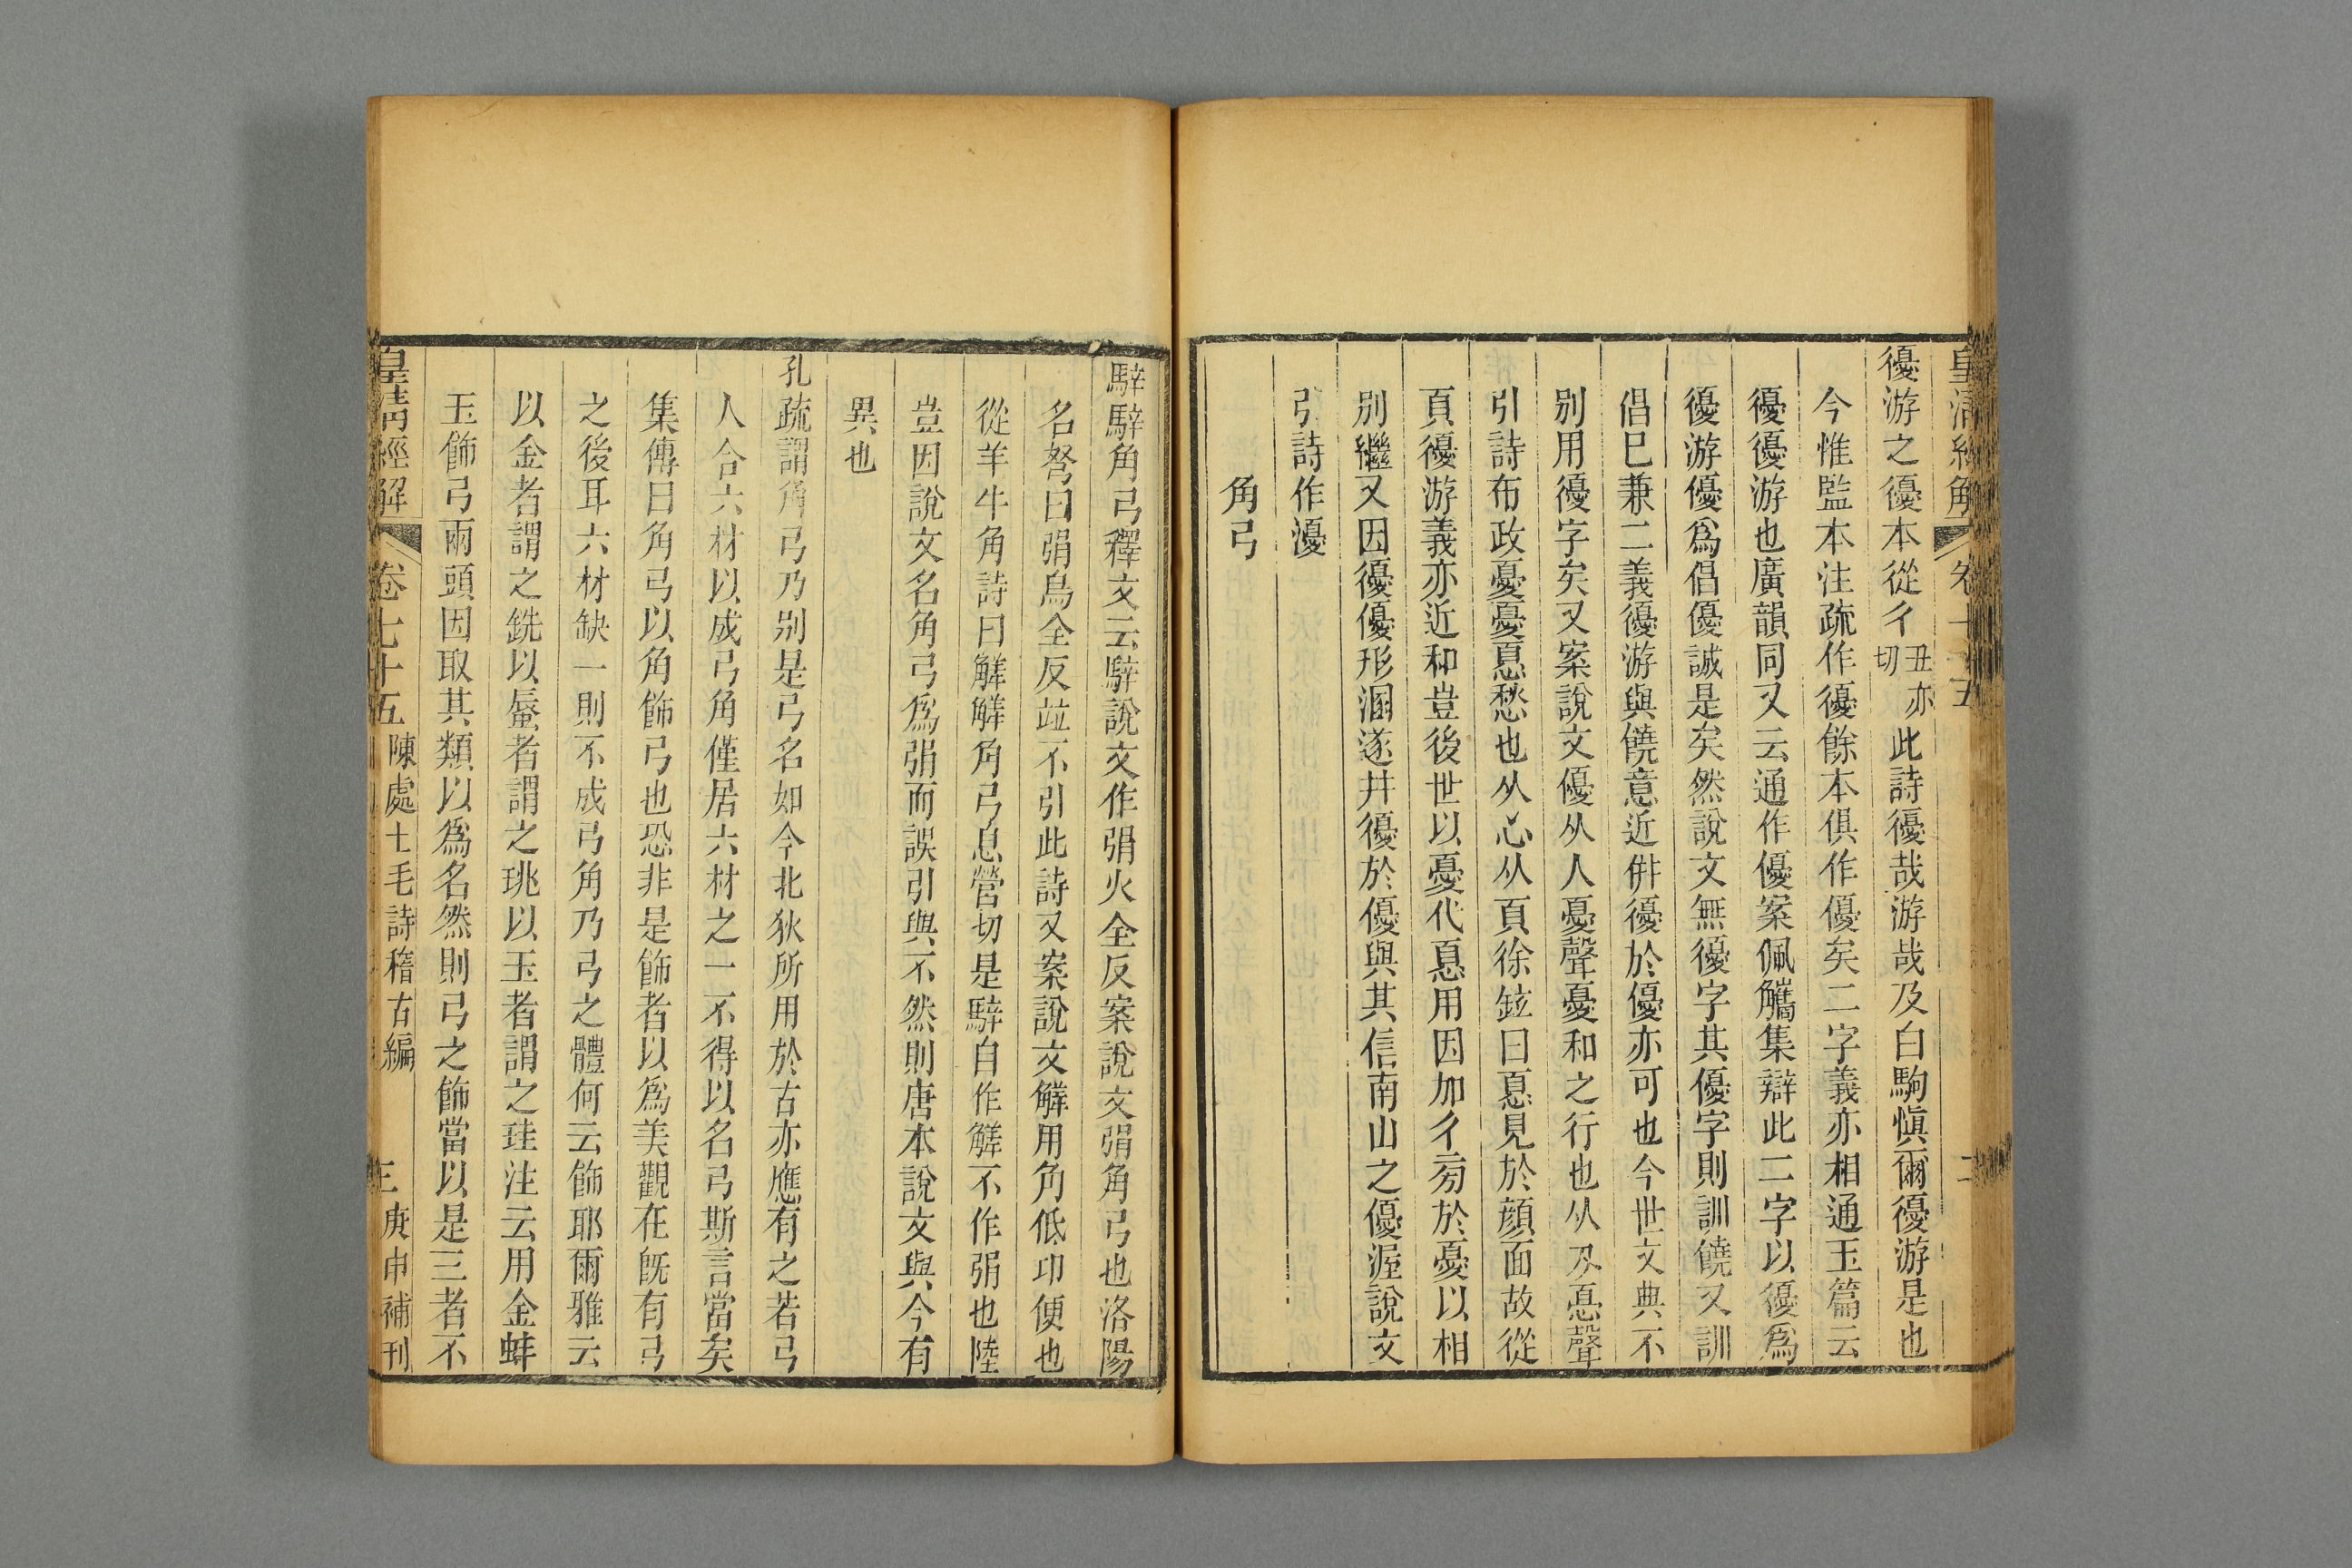 優游之優本從彳丑亦切此詩優哉游哉及白駒愼爾優游是也
今惟監本注疏作優餘本俱作優矣二字義亦相通玉篇云
優優游也廣韻同又云通作優案佩觿集辯此二字以優爲
優游優爲倡優誠是矣然說文無優字其優字則訓饒又訓
倡巳兼二義優游與饒意近倂優於優亦可也今世文典不
别用優字矣又案說文優从人憂聲憂和之行也从夊㥑聲
引詩布政憂憂㥑愁也从心从頁徐鉉曰㥑見於顔面故從
頁優游義亦近和豈後世以憂代㥑用因加彳㫄於憂以相
别繼又因優優形溷遂幷優於優與其信南山之優渥說文
引詩作瀀
角弓
騂騂角弓釋文云騂說文作弲火全反案說文弲角弓也洛陽
名弩曰弲烏全反竝不引此詩又案說文觲用角低卬便也
從羊牛角詩曰觲觲角弓息營切是騂自作觲不作弲也陸
豈因說文名角弓爲弲而誤引與不然則唐本說文與今有
異也
孔疏謂角弓乃别是弓名如今北狄所用於古亦應有之若弓
人合六材以成弓角僅居六材之一不得以名弓斯言當矣
集傳曰角弓以角飾弓也恐非是飾者以爲美觀在旣有弓
之後耳六材缺一則不成弓角乃弓之體何云飾耶爾雅云
以金者謂之銑以蜃者謂之珧以玉者謂之珪注云用金蚌
玉飾弓兩頭因取其類以爲名然則弓之飾當以是三者不
皇清經解 卷七十五 陳處士毛詩稽古編 三 庚申補刊